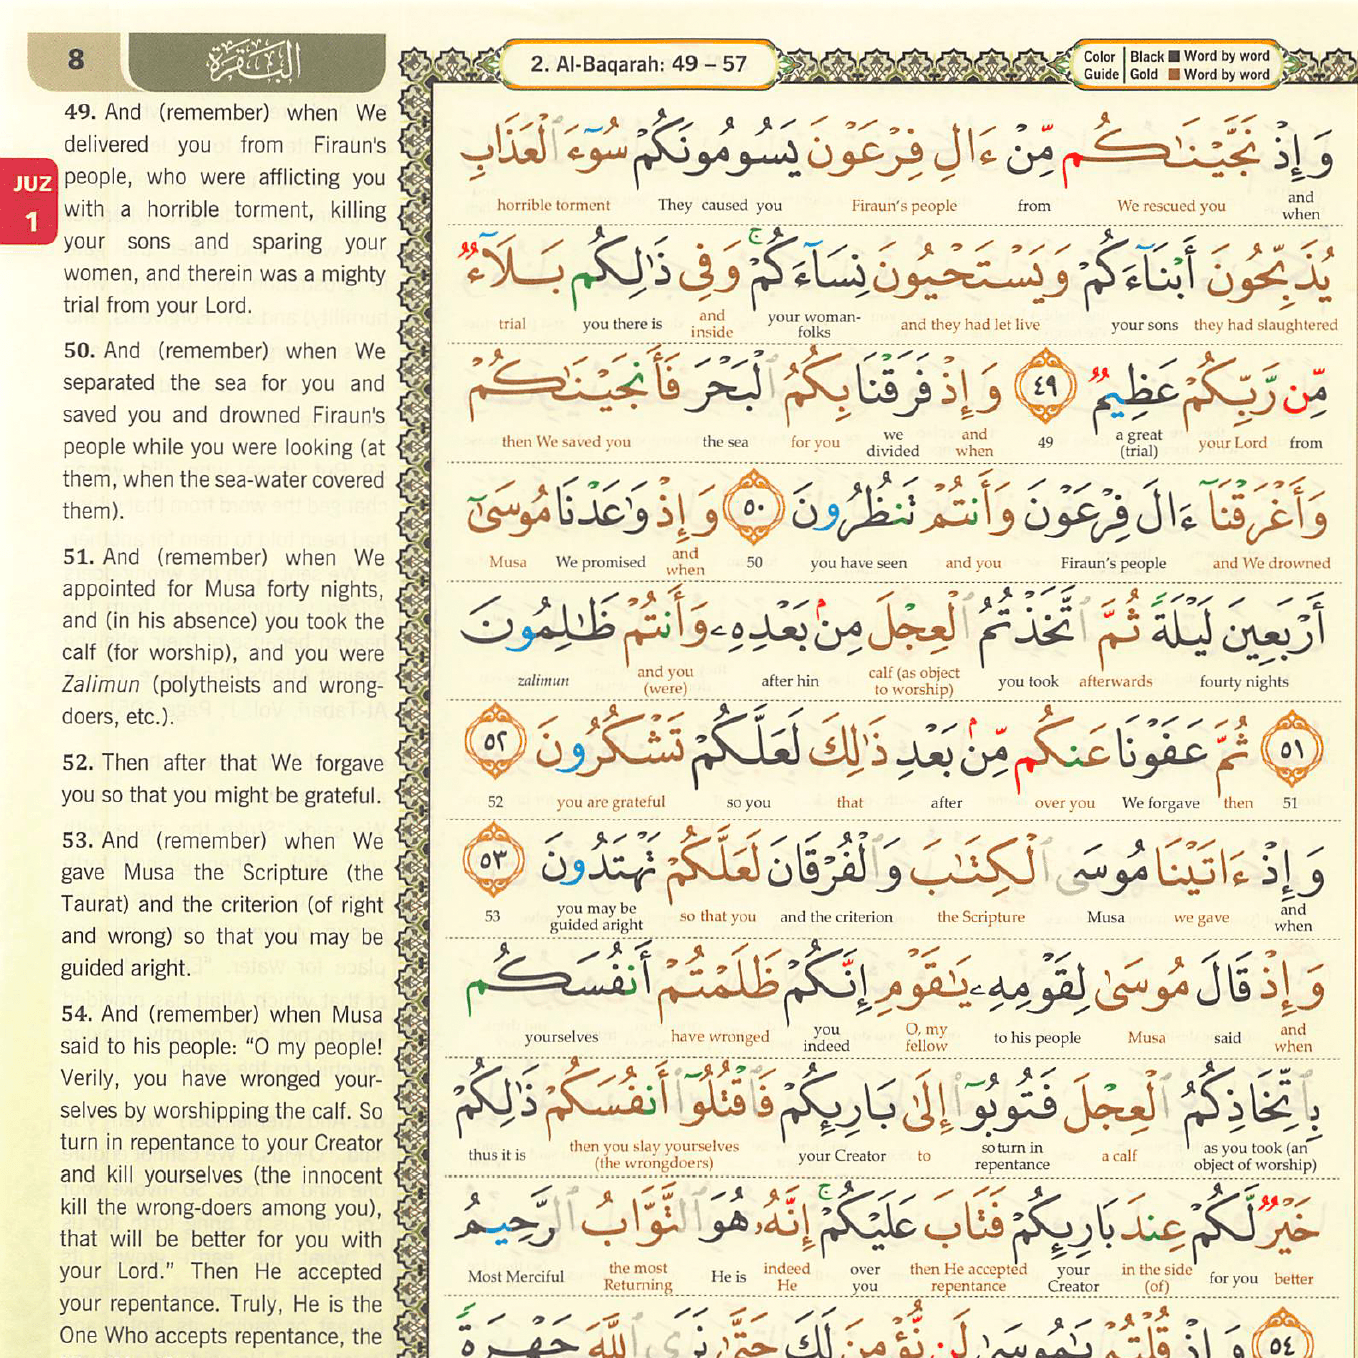 8
البقرة
2. Al-Baqarah: 49 – 57
Color Guide | Black ■ Word by word
Gold ■ Word by word
JUZ
1
49. And (remember) when We
delivered you from Firaun's
people, who were afflicting you
with a horrible torment, killing
your sons and sparing your
women, and therein was a mighty
trial from your Lord.
50. And (remember) when We
separated the sea for you and
saved you and drowned Firaun's
people while you were looking (at
them, when the sea-water covered
them).
51. And (remember) when We
appointed for Musa forty nights,
and (in his absence) you took the
calf (for worship), and you were
Zalimun (polytheists and wrong-
doers, etc.).
52. Then after that We forgave
you so that you might be grateful.
53. And (remember) when We
gave Musa the Scripture (the
Taurat) and the criterion (of right
and wrong) so that you may be
guided aright.
54. And (remember) when Musa
said to his people: “O my people!
Verily, you have wronged your-
selves by worshipping the calf. So
turn in repentance to your Creator
and kill yourselves (the innocent
kill the wrong-doers among you),
that will be better for you with
your Lord.” Then He accepted
your repentance. Truly, He is the
One Who accepts repentance, the
وَإِذْ نَجَّيْنَٰكُم مِّنْ ءَالِ فِرْعَوْنَ يَسُومُونَكُمْ سُوٓءَ ٱلْعَذَابِ
and when We rescued you from Firaun's people They caused you horrible torment
يُذَبِّحُونَ أَبْنَآءَكُمْ وَيَسْتَحْيُونَ نِسَآءَكُمْ ۚ وَفِى ذَٰلِكُم بَلَآءٌ
they had slaughtered your sons and they had let live your woman-folks and inside you there is trial
مِّن رَّبِّكُمْ عَظِيمٌ ٤٩ وَإِذْ فَرَقْنَا بِكُمُ ٱلْبَحْرَ فَأَنجَيْنَٰكُمْ
from your Lord a great (trial) 49 and when we divided for you the sea then We saved you
وَأَغْرَقْنَآ ءَالَ فِرْعَوْنَ وَأَنتُمْ تَنظُرُونَ ٥٠ وَإِذْ وَٰعَدْنَا مُوسَىٰٓ
and We drowned Firaun's people and you you have seen 50 and when We promised Musa
أَرْبَعِينَ لَيْلَةً ثُمَّ ٱتَّخَذْتُمُ ٱلْعِجْلَ مِنۢ بَعْدِهِۦ وَأَنتُمْ ظَٰلِمُونَ
fourty nights afterwards you took calf (as object to worship) after hin and you (were) zalimun
٥١ ثُمَّ عَفَوْنَا عَنكُم مِّنۢ بَعْدِ ذَٰلِكَ لَعَلَّكُمْ تَشْكُرُونَ ٥٢
51 then We forgave over you after that so you you are grateful 52
وَإِذْ ءَاتَيْنَا مُوسَى ٱلْكِتَٰبَ وَٱلْفُرْقَانَ لَعَلَّكُمْ تَهْتَدُونَ ٥٣
and when we gave Musa the Scripture and the criterion so that you you may be guided aright 53
وَإِذْ قَالَ مُوسَىٰ لِقَوْمِهِۦ يَٰقَوْمِ إِنَّكُمْ ظَلَمْتُمْ أَنفُسَكُم
and when said Musa to his people O, my fellow you indeed have wronged yourselves
بِٱتِّخَاذِكُمُ ٱلْعِجْلَ فَتُوبُوٓا۟ إِلَىٰ بَارِئِكُمْ فَٱقْتُلُوٓا۟ أَنفُسَكُمْ ذَٰلِكُمْ
as you took (an object of worship) a calf so turn in repentance to your Creator then you slay yourselves (the wrongdoers) thus it is
خَيْرٌ لَّكُمْ عِندَ بَارِئِكُمْ فَتَابَ عَلَيْكُمْ ۚ إِنَّهُۥ هُوَ ٱلتَّوَّابُ ٱلرَّحِيمُ
better for you in the side (of) your Creator then He accepted repentance over you indeed He He is the most Returning Most Merciful
٥٤ وَإِذْ قُلْتُمْ يَٰمُوسَىٰ لَن نُّؤْمِنَ لَكَ حَتَّىٰ نَرَى ٱللَّهَ جَهْرَةً